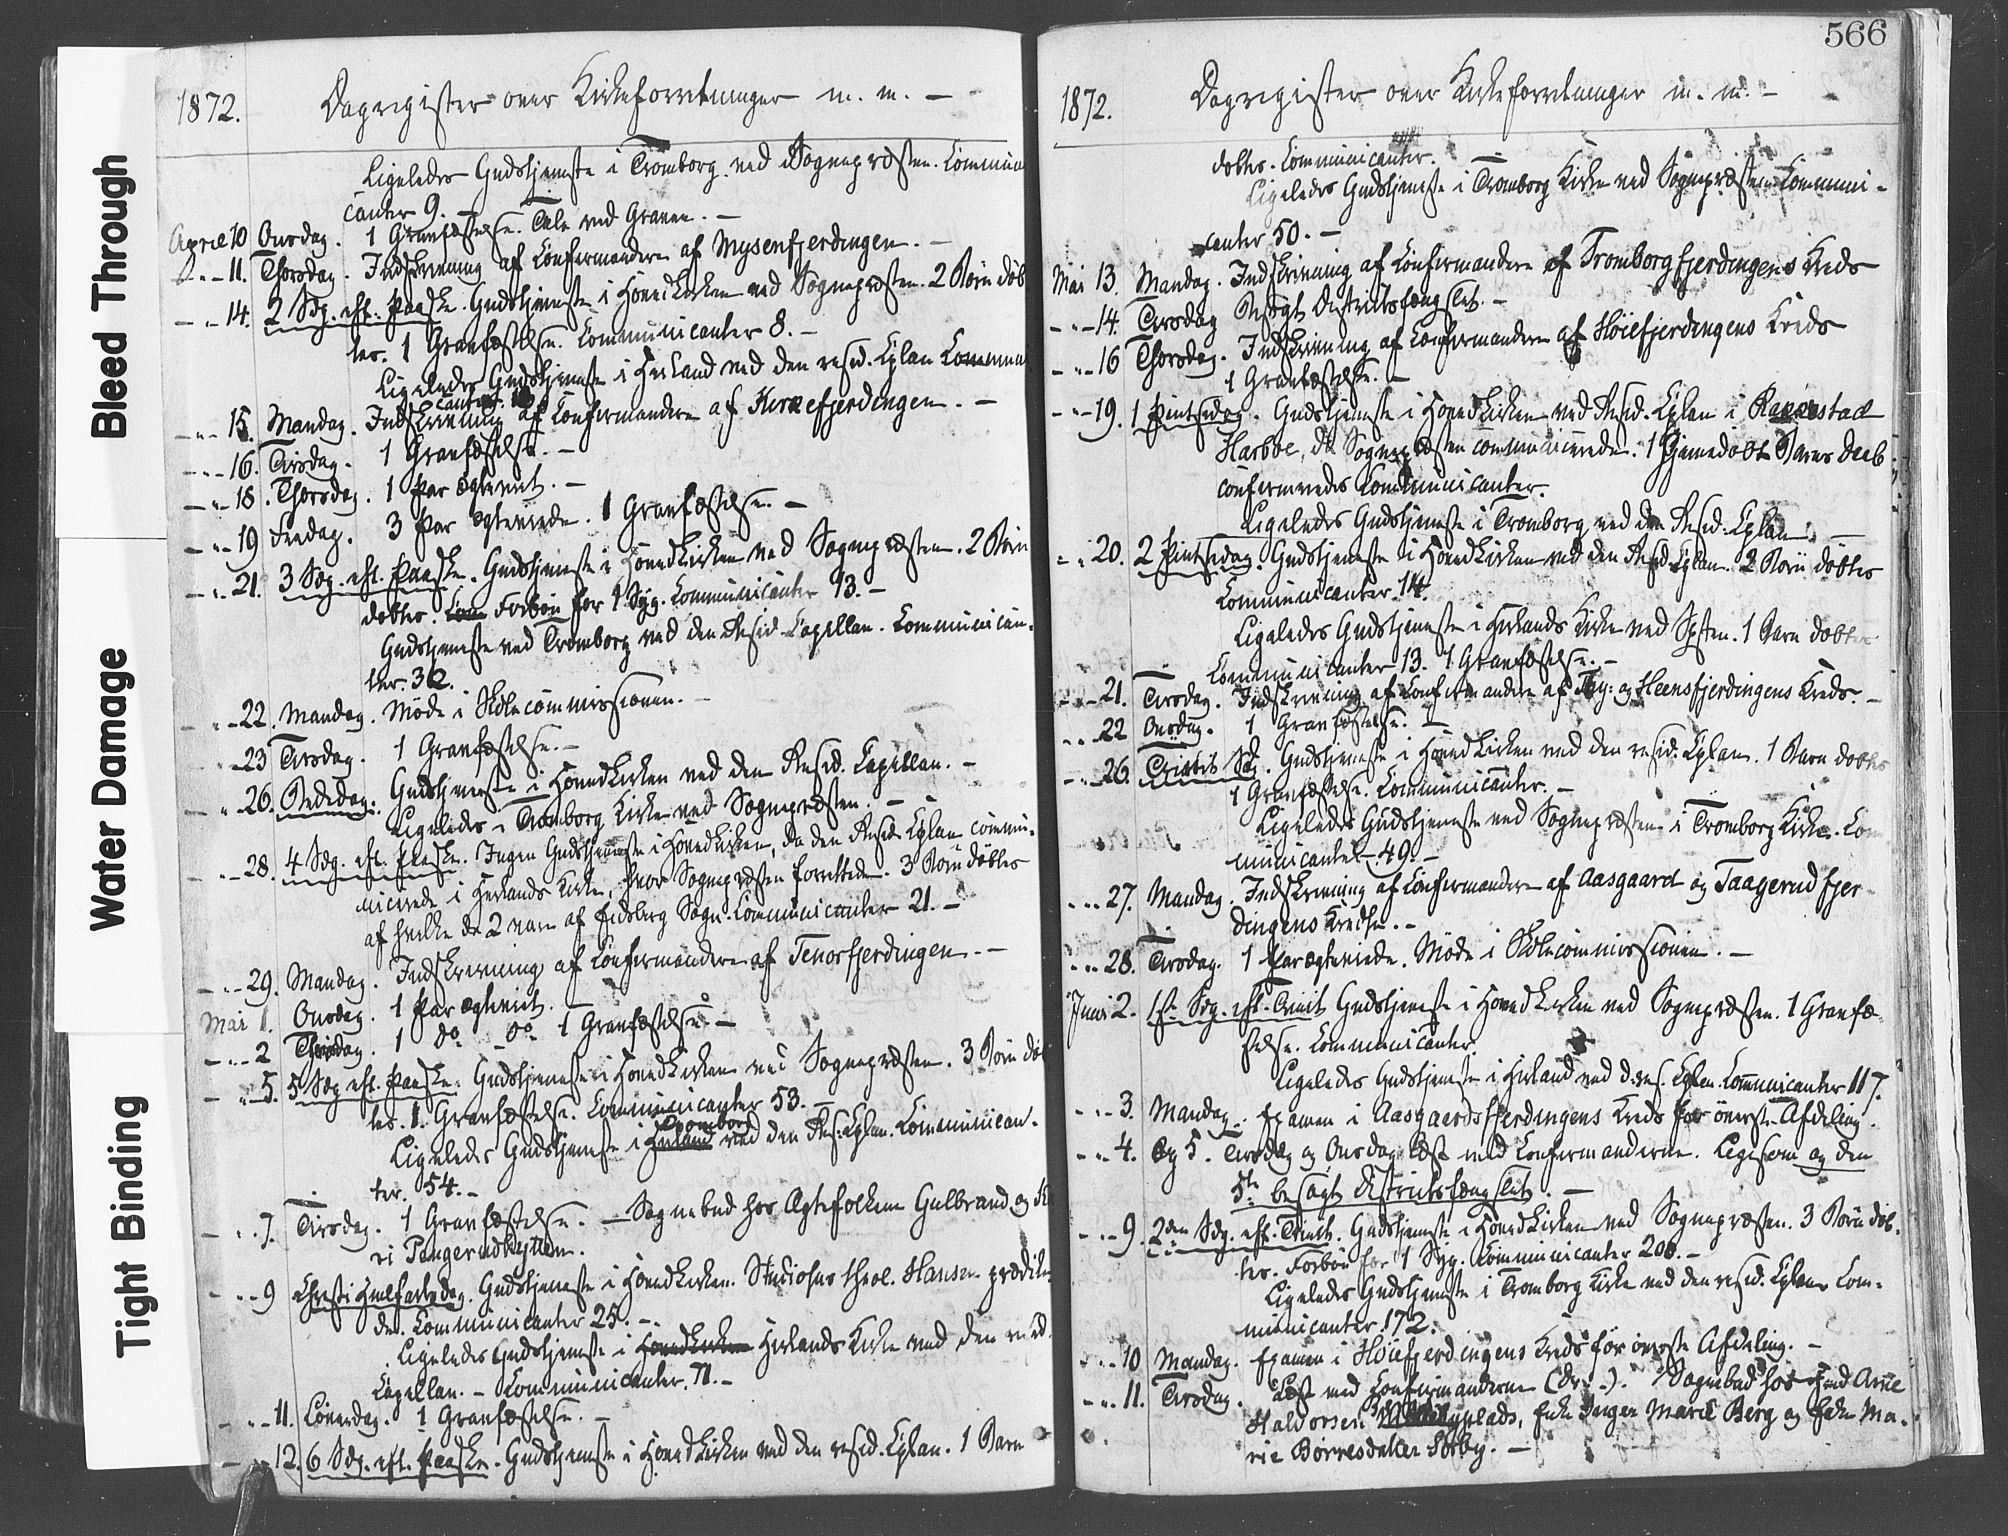 Bleed Through
Water Damage
Tight Binding
1872. Dagregister over Kirkeforretninger m. m. —
Ligeledes Gudstjeneste i Tromborg ved Sognepræsten. Communi
canter 9. —
April 10 Onsdag. 1 Gravfæstelse. Tale ved Graven. —
" — 11. Thorsdag. Indskrivning af Confirmandere af Mysenfjerdingen. —
— " — 14. 2 Sdg. eft. Paaske. Gudstjeneste i Hovedkirken ved Sognepræsten. 2 Børn døb
tes. 1 Gravfæstelse. Communicanter 8. —
Ligeledes Gudstjeneste i Herland ved den resid. Cplan Commun
canter
— " — 15. Mandag. Indskrivning af Confirmandere af Kirkefjerdingen. —
— " — 16. Tirsdag. 1 Gravfæstelse. —
— " — 18. Thorsdag. 1 Par Egteviet. —
— " — 19 Fredag. 3 Par Egteviede. 1 Gravfæstelse. —
— " — 21. 3 Sdg. eft. Paaske. Gudstjeneste i Hovedkirken ved Sognepræsten. 2 Børn
døbtes. Com Forbøn for 1 Syg. Communicanter 93. —
Gudstjeneste ved Tromborg ved den Resid. Capellan. Communican-
ter. 32.
" — 22. Mandag. Møde i Skolecommissionen. —
23 Tirsdag. 1 Gravfæstelse. —
" 26. Bededag. Gudstjeneste i Hovedkirken ved den Resid. Capellan. —
Ligeledes i Tromborg Kirke ved Sognepræsten. —
" — 28. 4 Sdg. eft. Paaske. Ingen Gudstjeneste i Hovedkirken, da den Resid. Cplan commu-
nicerede i Herlands Kirke, hvor Sognepræsten forrettede. 3 Børn døbtes
af hvilke de 2 vare af Eidsberg Sogn. Communicanter 21. —
— " — 29. Mandag. Indskrivning af Confirmandere af Tenorfjerdingen. —
Mai 1. Onsdag. 1 Par egteviet.
— " — 2 Thorsdag. 1 do do 1 Gravfæstelse. —
— " 5. 5 Sdg. eft. Paaske. Gudstjeneste i Hovedkirken ved Sognepræsten. 3 Børn dø
tes. 1. Gravfæstelse. Communicanter 53. —
Tromborg
Ligeledes Gudstjeneste i Herland ved den Res. Cplan. Communican-
ter. 54. —
— " 7. Tirsdag. 1 Gravfæstelse. — Sognebud hos Ægtefolkene Gulbrand og K
ri Pengerudhytten.
— " — 9 Christi Himmelfartsdag. Gudstjeneste i Hovedkirken. Studiosus theol. Hansen prædike
de. Communicanter 25. —
Ligeledes Gudstjeneste i Hovedkirken Herlands Kirke ved den resid.
Capellan. — Communicanter. 71. —
" — 11. Löverdag. 1 Gravfæstelse. —
— " — 12. 6 Sdg. eft. Paaske. Gudstjeneste i Hovedkirken ved den resid. Cplan. 1 Barn
566
1872. Dagregister over Kirkeforretninger m. m. —
døbtes. Communicanter.
Ligeledes Gudstjeneste i Tromborg Kirke ved Sognepræsten Communi-
canter 50. —
Mai 13. Mandag. Indskrivning af Confirmandere af Tromborgfjerdingens Kreds
— " — 14. Tirsdag Besøgt Districtsfængslet. —
— " — 16 Thorsdag. Indskrivning af Confirmandere af Høiefjerdingens Kreds
1 Gravfæstelse. —
— " — 19. 1 Pintsedag. Gudstjeneste i Hovedkirken ved Resid. Cplan i Rakkestad
Harboe, da Sognepræsten communicerede. 1 Hjemmedøbt Barns Daab
confirmeredes Communicanter.
Ligeledes Gudstjeneste i Tromborg ved den Resid. Cplan. —
— " 20. 2 Pintsedag. Gudstjeneste i Hovedkirken ved den Resid. Cplan. 2 Børn døbtes
Communicanter 14.
Ligeledes Gudstjeneste i Herlands Kirke ved Spsten. 1 Barn døbtes
Communicanter 13. 1 Gravfæstelse. —
— " — 21. Tirsdag. Indskrivning af Confirmandere af og Heensfjerdingens Kreds. —
— " — 22 Onsdag. 1 Gravfæstelse. —
— " — 26. Trinitis Sdg. Gudstjeneste i Hovedkirken ved den resid. Cplan. 1 Barn døbtes
1 Gravfæstelse. Communicanter. —
Ligeledes Gudstjeneste ved Sognepræsten i Tromborg Kirke. Com
municanter 49. —
— " — 27. Mandag. Indskrivning af Confirmandere af Aasgaard og Taagerud fjer
dingens Kredse. —
— " — 28. Tirsdag. 1 Par egteviede. Møde i Skolecommissionen. —
Juni 2. 1ste Sdg. eft. Trinit. Gudstjeneste i Hovedkirken ved Sognepræsten. 1 Gravfæ-
stelse. Communicanter
Ligeledes Gudstjeneste i Herland ved d. res. Cplan. Communicanter 117.
— " — 3. Mandag. Examen i Aasgaardsfjerdingens Kreds for överste Afdeling.
— " — 4. Og 5. Tirsdag og Onsdag læst med Confirmanderne. Ligesom og den
5te besøgt Districtsfængslet. —
— " — 9. 2den Sdg. eft. Trinit. Gudstjeneste i Hovedkirken ved Sognepræsten. 3 Børn døb-
tes. Forbøn for 1 Syg. Communicanter 200. —
Ligeledes Gudstjeneste i Tromborg Kirke ved den resid. Cplan. Com-
municanter 172.
— " — 10 Mandag. Examen i Høiefjerdingens Kreds for överste Afdeling. —
— " — 11. Tirsdag. Læst med Confirmanderne Sognebud hos
Haldorsen plads, Enke Inger Marie Berg og Enke Ma-
rie Børresdatter Sørby. —